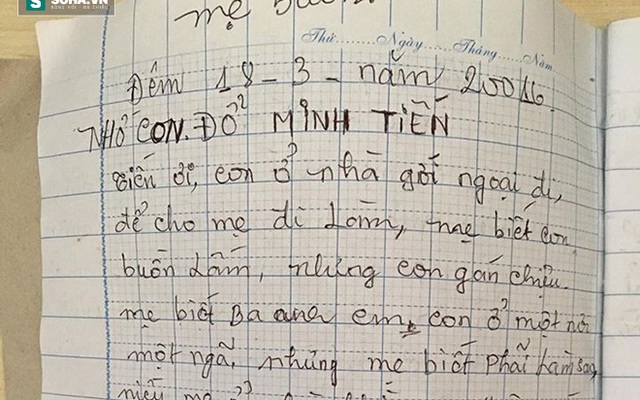 SOHA.VN
mẹ
Thứ Ngày Tháng Năm
Đêm 18-3-năm 200
NHỚ CON. ĐỖ MINH TIẾN
tiến ơi, con ở nhà gới ngoại đi,
để cho mẹ đi Làm, mẹ biết con
buồn Lắm, nhưng con gan chiệu.
mẹ biết Ba anh em, con ở một nơi
một ngã, nhưng mẹ biết phải Làm sao
niếu mẹ